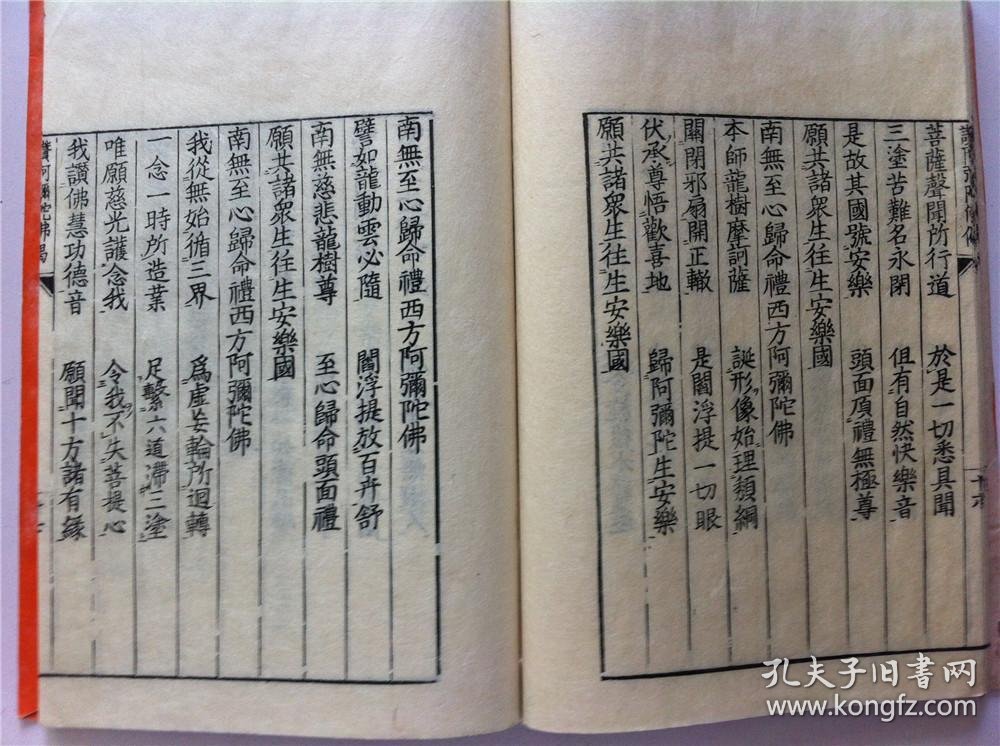 菩薩聲聞所行道　於是一切悉具聞
三塗苦難名永閉　但有自然快樂音
是故其國號安樂　頭面頂禮無極尊
願共諸眾生往生安樂國
南無至心歸命禮西方阿彌陀佛
本師龍樹摩訶薩　誕形像始理頹綱
關閉邪扇開正轍　是閻浮提一切眼
伏承尊悟歡喜地　歸阿彌陀生安樂
願共諸眾生往生安樂國
南無至心歸命禮西方阿彌陀佛
譬如龍動雲必隨　閻浮提放百卉舒
南無慈悲龍樹尊　至心歸命頭面禮
願共諸眾生往生安樂國
南無至心歸命禮西方阿彌陀佛
我從無始循三界　為虛妄輪所迴轉
一念一時所造業　足繫六道滯三塗
唯願慈光護念我　令我不失菩提心
我讚佛慧功德音　願聞十方諸有緣
讚阿彌陀佛偈
孔夫子旧书网
www.kongfz.com